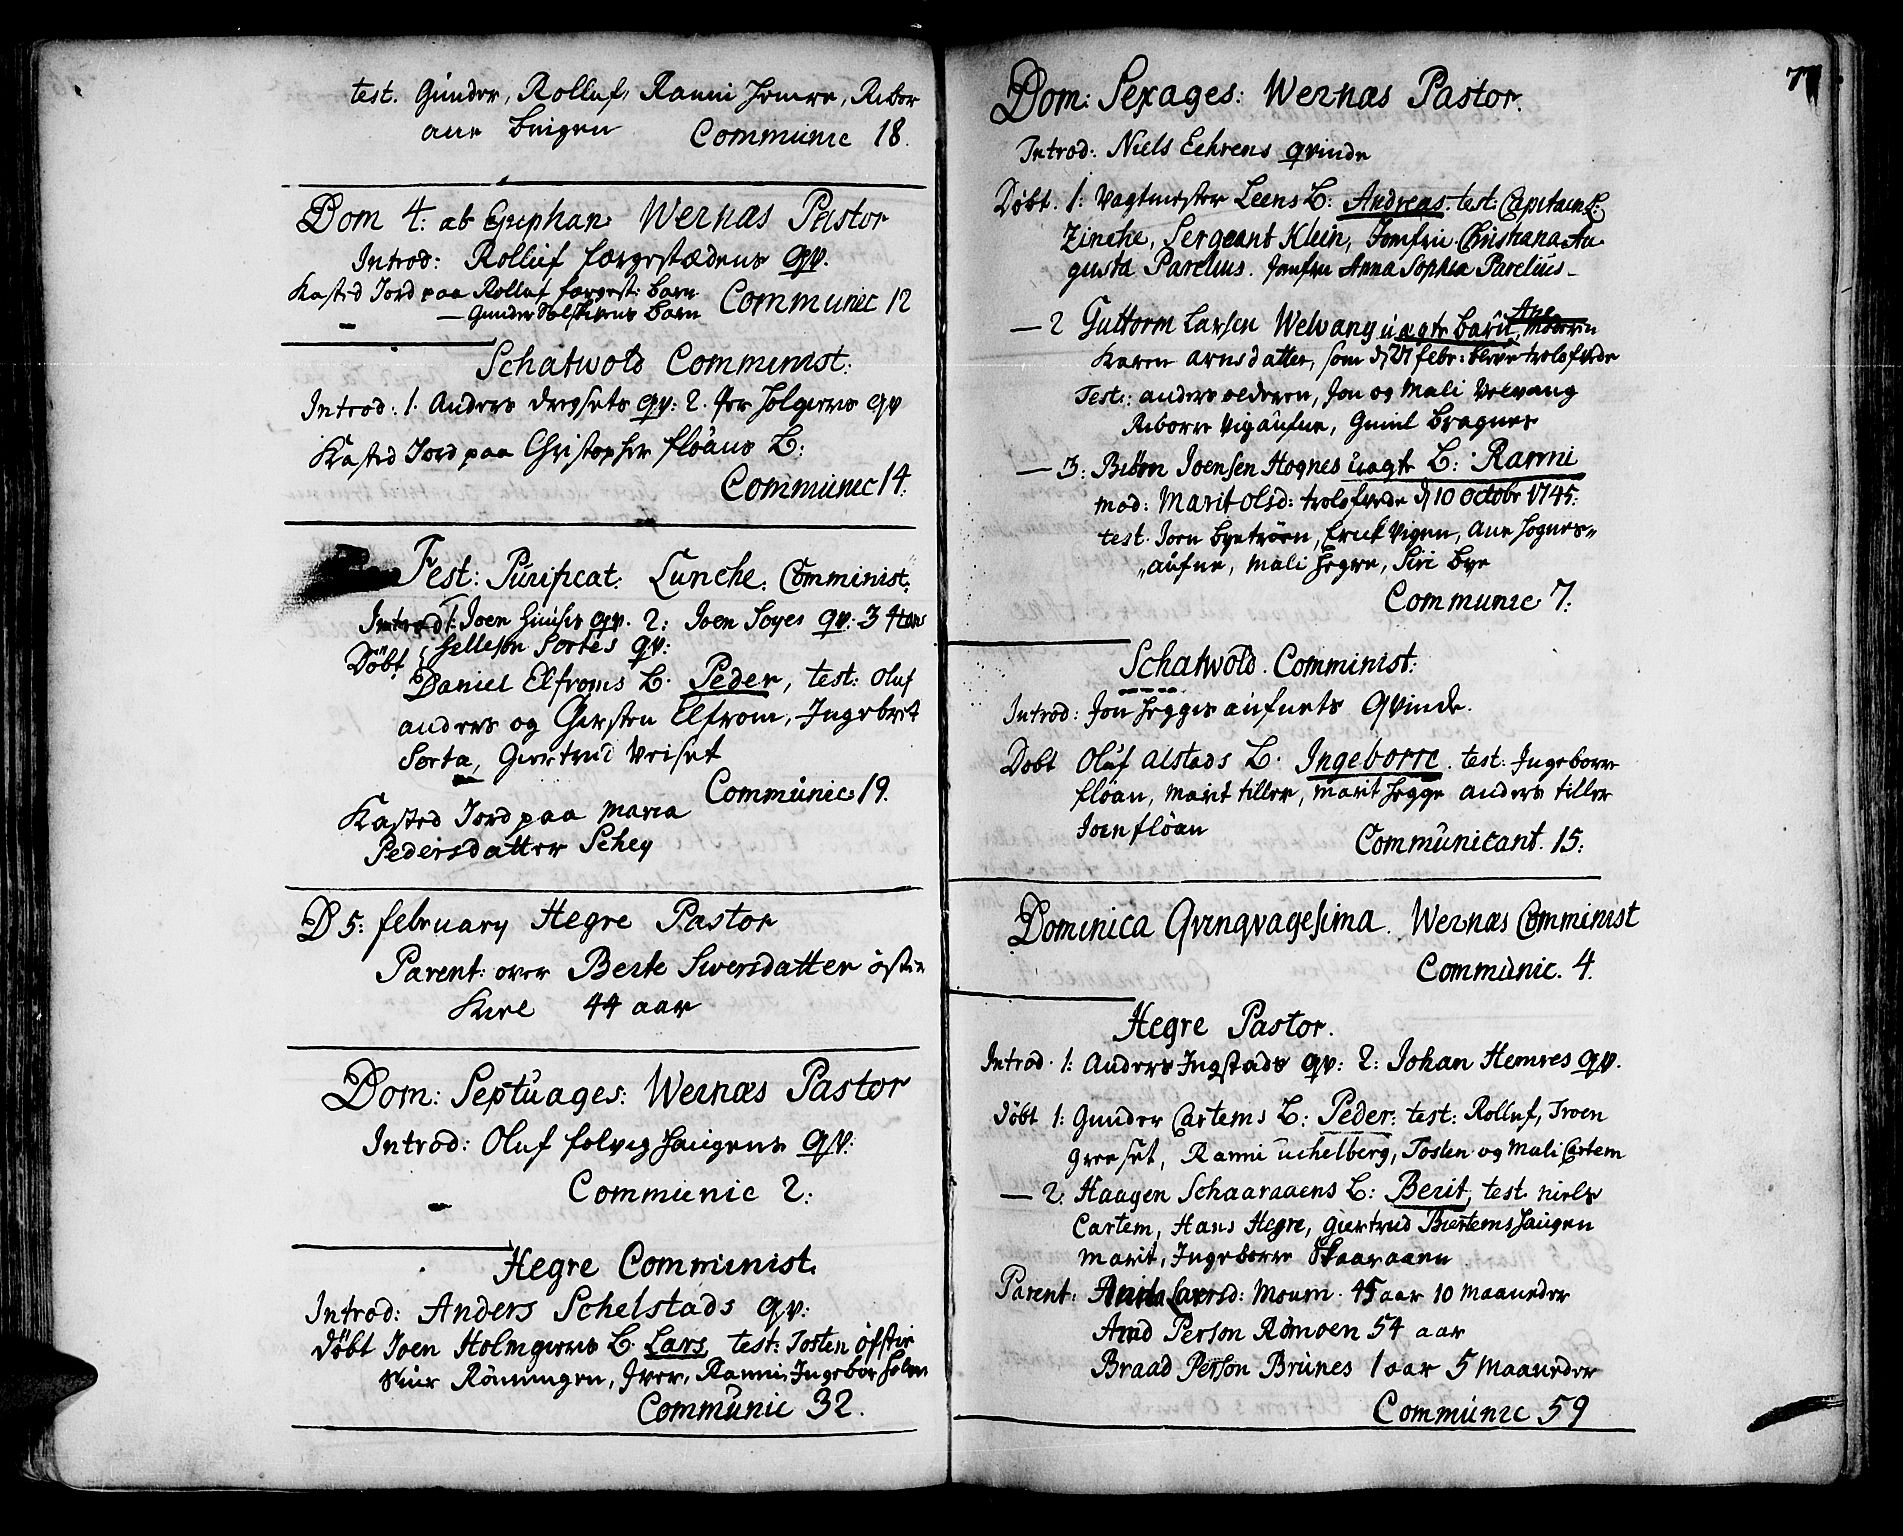 test. Gunder, Rolluf, Ranni Hemre, Rebor
ane Buigen Communic 18.
Dom 4: ab Epiphan: Wernæs Pastor
Introd: Rolluf færgestædens qv.
Kasted Jord paa Rolluf færgest: Barn
— Gunder Barn Communic 12
Schatwold Comminist:
Introd: 1. Anders qv: 2. Per qv
Kasted Jord paa Christopher flöans B:
Communic 14.
Fest: Purificat: Lunche. Comminist.
Introd: 1. Joen qv. 2: Joen Soyes qv: 3 Hans
Hellesen Sortes qv:
Döbt Daniel Elfroms B. Peder, test: Oluf
anders og Giersten Elfrom, Ingebret
Sorta, Giertrud Vriset
Communic 19.
Kasted Jord paa Maria
Pedersdatter Schey
D 5: february Hegre Pastor
Parent: over Berte Siversdatter öster
Kirl 44 aar
Dom: Septuages: Wernæs Pastor
Introd: Oluf Haugens qv:
Communic 2:
Hegre Comminist.
Introd: Anders Schelstads qv:
Döbt Joen Holmgierns B. Lars test: Tosten
Rönningen, Iver, Ranni, Ingebor
Communic 32.
7
Dom: Sexages: Wernæs Pastor.
Introd: Niels Eehrens qvinde
Döbt. 1: Vagtmester Leens B: Andreas. test: Capitain
Zinche, Sergeant Klein, Jomfru Christiana Au
gusta Parelius. Jomfru Anna Sophia Parelius
— 2 Guttorm Larsen Welvang uægte barn Moderen
Karen Arnsdatter, som d 27 febr: bleve trolofvede
Test: anders olderen, Jon og Mali Velvang
Reborre Vigaufne, Gunil Bragnes
— 3: Biörn Joensen Hognes uægte B: Ranni
mod: Marit Olsd: trolofvede d 10 octobr 1745:
test. Joen Byetröen, Erick Vigen, Ane Hognes„
„aufne, Mali Hegre, Siri Bye
Communic 7:
Schatwold. Comminist:
Introd: Jon Hegges aufnets Qvinde.
Döbt Oluf Alstads B. Ingeborre. test: Ingeborre
flöan, Marit tiller, Marit Hegge anders tiller
Joen flöan Communicant. 15:
Dominica Qvinqvagesima. Wernæs Comminist
Communic. 4.
Hegre Pastor.
Introd. 1: Anders Ingstads qv: 2: Johan Hemres qv.
Döbt 1: Gunder Cartems B: Peder: test: Rolluf, Troen
Greeset, Ranni Uchelberg, Tosten og Mali Cartem
— 2. Haagen Schaaraaens B: Berit, test. Niels
Cartem, Hans Hegre, Giertrud Biertemshaugen
Marit, Ingeborre Skaaraaen
Parent: Larsd: Moum. 45 aar 10 Maaneder
Arnd Person Römoen 54 aar
Braad Person Brunes 1 aar 5 Maaneder
Communic 59